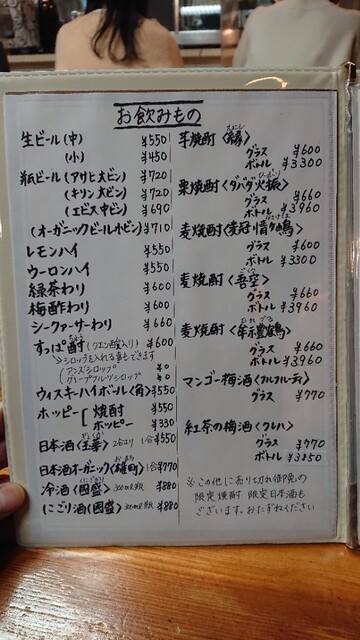 お飲みもの
生ビール(中) ¥550
(小) ¥450
瓶ビール(アサヒ大ビン) ¥720
(キリン大ビン) ¥720
(エビス中ビン) ¥690
(オーガニックビール小ビン) ¥710
レモンハイ ¥550
ウーロンハイ ¥550
緑茶わり ¥600
梅酢わり ¥600
シークァーサーわり ¥660
すっぱ酎(クエン酸入り) ¥600
シロップを入れる事もできます
アンズシロップ ¥0
グレープフルーツシロップ ¥0
ウィスキーハイボール(角) ¥550
ホッピー[焼酎 ¥550
ホッピー ¥330
日本酒 2合より 1合 ¥550
日本酒オーガニック(雄町) 1合 ¥770
冷酒(國盛) 300ml瓶 ¥880
にごり酒(國盛) 300ml瓶 ¥880
芋焼酎
グラス ¥600
ボトル ¥3300
栗焼酎〈ダバダ火振〉
グラス ¥660
ボトル ¥3960
麦焼酎
グラス ¥600
ボトル ¥3300
麦焼酎〈吾空〉
グラス ¥660
ボトル ¥3960
麦焼酎
グラス ¥660
ボトル ¥3960
マンゴー梅酒〈フルフルーティ〉
グラス ¥770
紅茶の梅酒〈クレハ〉
グラス ¥770
ボトル ¥3850
※この他に売り切れ御免の
限定焼酎 限定日本酒も
ございます。おたずねください